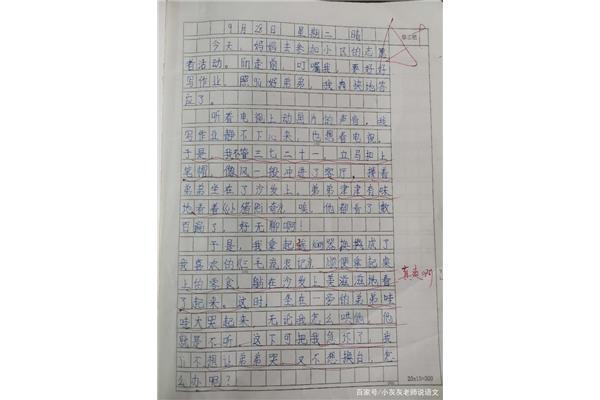 9月28日 星期二 晴
今天，妈妈去参加小区的志愿
者活动。临走前，叮嘱我，要好好
写作业，照顾好弟弟，我爽快地答
应了。
听着电视上动画片的声音，我
写作业静不下心来，也想看电视。
于是，我不管三七二十一，立马扣上
笔帽，像风一般冲进了客厅，挨着
弟弟坐在了沙发上。弟弟津津有味
地看着《小猪佩奇》，唉，他都看了数
百遍了，好无聊啊！
于是，我拿起遥控器换成了
我喜欢的《三毛流浪记》，顺便拿起桌
上的零食，躺在沙发上美滋滋地看
了起来。这时，坐在一旁的弟弟哇
哇大哭起来，无论我怎么哄他，他
就是不听。这下可把我急坏了，我
不想让弟弟哭，又不想换台，怎
么办呢？
真爽啊
20×15=300
百家号/小灰灰老师说语文